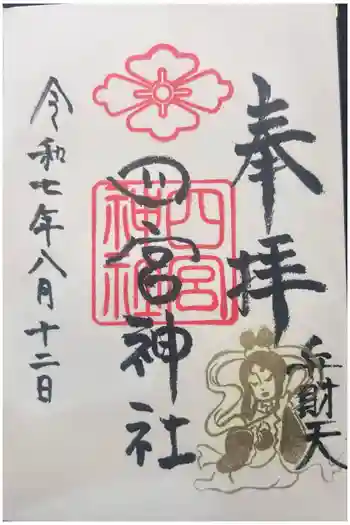 奉拝
弁財天
四宮神社
四宮
神社
令和七年八月十二日